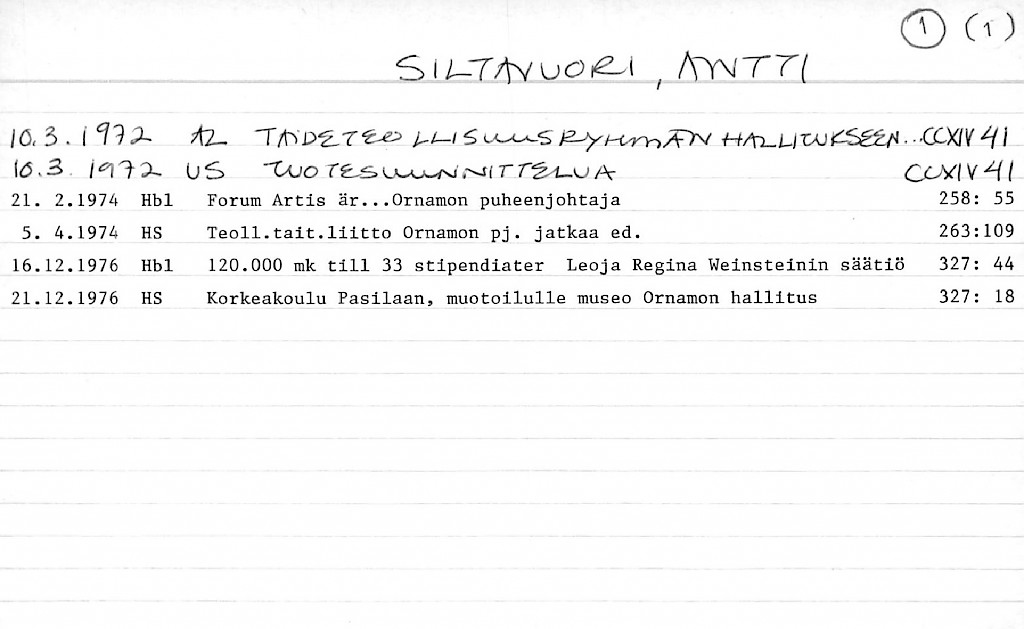 1 (1)
SILTAVUORI, ANTTI
10.3.1972 AL TAIDETEOLLISUUSRYHMÄN HALLITUKSEEN... CCXIV 41
10.3.1972 US TUOTESUUNNITTELUA CCXIV 41
21. 2.1974 Hbl Forum Artis är...Ornamon puheenjohtaja 258: 55
5. 4.1974 HS Teoll.tait.liitto Ornamon pj. jatkaa ed. 263:109
16.12.1976 Hbl 120.000 mk till 33 stipendiater Leoja Regina Weinsteinin säätiö 327: 44
21.12.1976 HS Korkeakoulu Pasilaan, muotoilulle museo Ornamon hallitus 327: 18